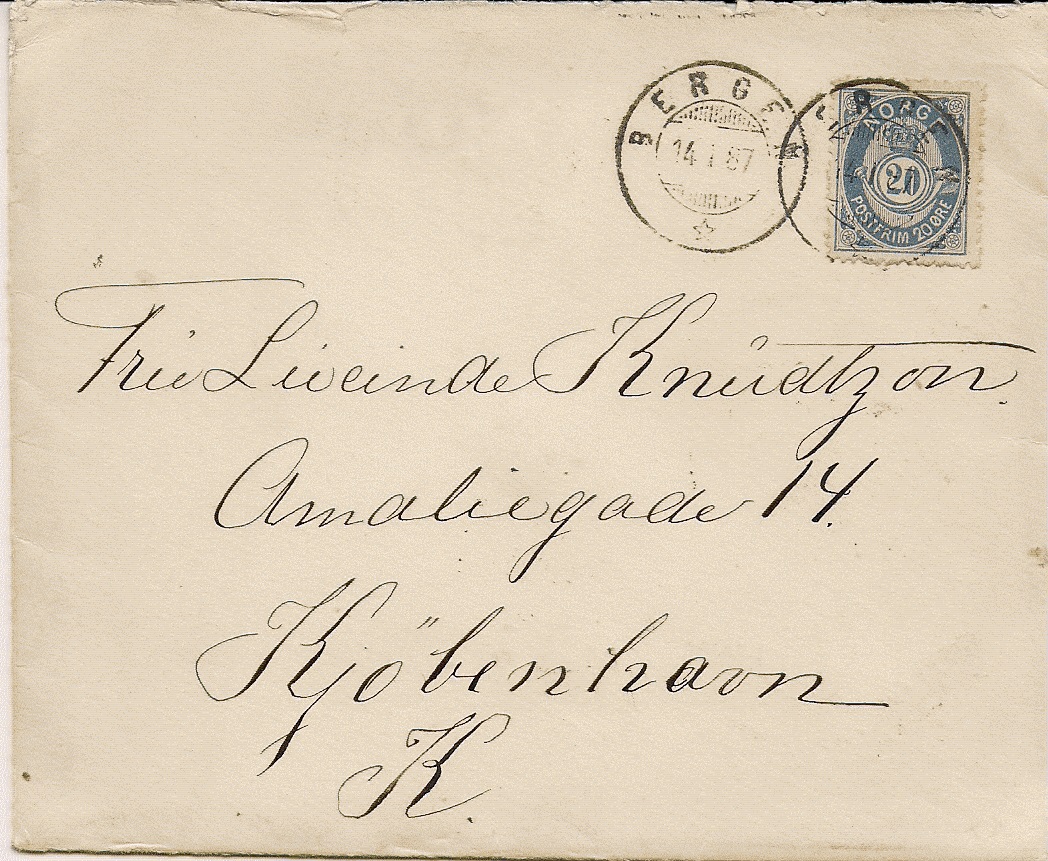 BERGEN
14 I 87
NORGE
20
POSTFRIM 20 ØRE
Knudtzon.
Amaliegade 14.
Kjöbenhavn
K.